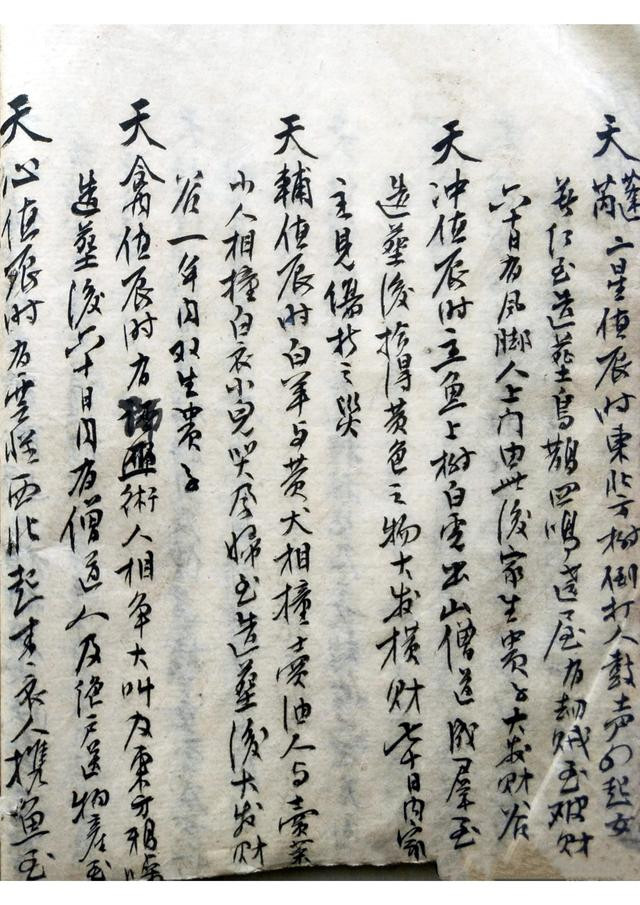 天蓬芮二星值辰时東北方树倒打人鼓声四起女
至造葬鳥鵲四鳴遶屋有劫贼至破财
六十日有风脚人上门由此後家生贵子大发财谷
天冲值辰时主鱼上树白虎出山僧道成羣至
造葬後拾得黄色之物大发横财七十日内家
主見傷折之災
天輔值辰时白羊与黄犬相撞卖油人与卖菜
小人相撞白衣小兒哭孕婦至造葬後大发财
谷一年内双生贵子
天禽值辰时有巫術人相争大叫及東方相
造葬後六十日内有僧道人及绝户送物產至
天心值辰时有雲从西北起青衣人携鱼至